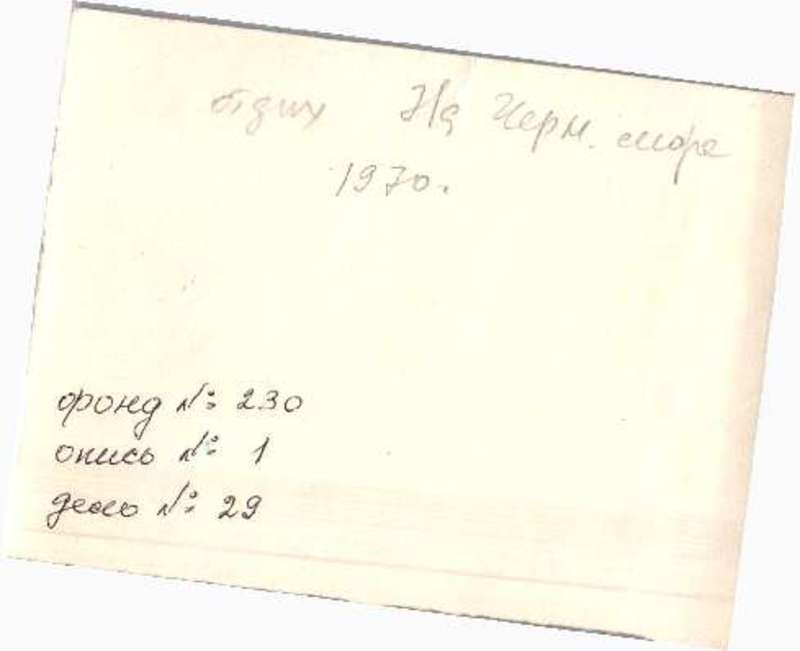 отдих На Черн. море
1970.
фонд №: 230
опись №: 1
дело №: 29